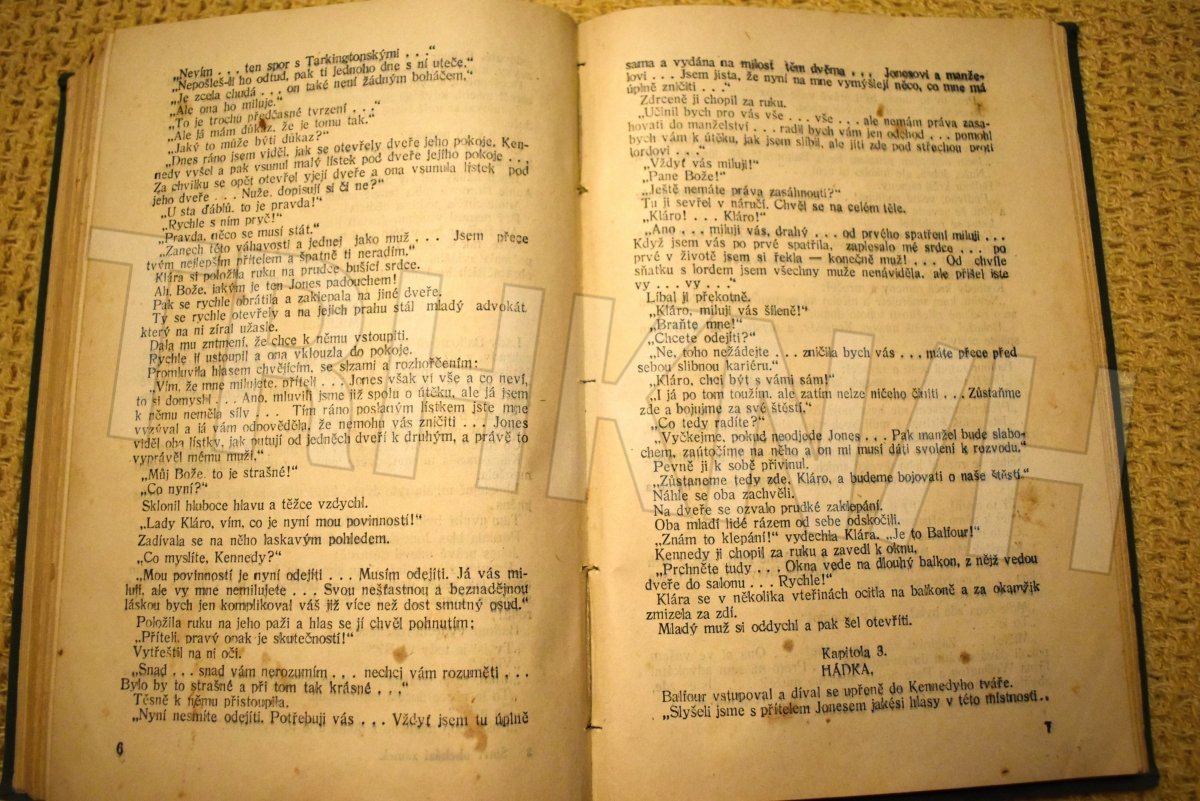 „Nevím . . . ten spor s Tarkingtonskými . . .“
„Nepošleš-li ho odtud, pak ti jednoho dne s ní uteče.“
„Je zcela chudá . . . on také není žádným boháčem.“
„Ale ona ho miluje.“
„To je trochu předčasné tvrzení . . .“
„Ale já mám důkaz, že je tomu tak.“
„Jaký to může býti důkaz?“
„Dnes ráno jsem viděl, jak se otevřely dveře jeho pokoje, Ken-
nedy vyšel a pak vsunul malý lístek pod dveře jejího pokoje . . .
Za chvilku se opět otevřel yjejí dveře a ona vsunula lístek pod
jeho dveře . . . Nuže, dopisují si či ne?“
„U sta ďáblů, to je pravda!“
„Rychle s ním pryč!“
„Pravda, něco se musí stát.“
„Zanech této váhavosti a jednej jako muž . . . Jsem přece
tvým nejlepším přítelem a špatně ti neradím.“
Klára si položila ruku na prudce bušící srdce.
Ah, Bože, jakým je ten Jones padouchem!
Pak se rychle obrátila a zaklepala na jiné dveře.
Ty se rychle otevřely a na jejich prahu stál mladý advokát,
který na ni zíral užasle.
Dala mu znamení, že chce k němu vstoupiti.
Rychle jí ustoupil a ona vklouzla do pokoje.
Promluvila hlasem chvějícím, se slzami a rozhořčením:
„Vím, že mne milujete, příteli . . . Jones však ví vše a co neví,
to si domyslí . . . Ano, mluvili jsme již spolu o útěku, ale já jsem
k němu neměla síly . . . Tím ráno poslaným lístkem jste mne
vyzýval a já vám odpověděla, že nemohu vás zničiti . . . Jones
viděl oba lístky, jak putují od jedněch dveří k druhým, a právě to
vyprávěl mému muži.“
„Můj Bože, to je strašné!“
„Co nyní?“
Sklonil hluboce hlavu a těžce vzdychl.
„Lady Kláro, vím, co je nyní mou povinností!“
Zadívala se na něho laskavým pohledem.
„Co myslíte, Kennedy?“
„Mou povinností je nyní odejíti . . . Musím odejíti. Já vás mi-
luji, ale vy mne nemilujete . . . Svou nešťastnou a beznadějnou
láskou bych jen komplikoval váš již více než dost smutný osud.“
Položila ruku na jeho paži a hlas se jí chvěl pohnutím:
„Příteli, pravý opak je skutečností!“
Vytřeštil na ni oči.
„Snad . . . snad vám nerozumím . . . nechci vám rozuměti . . .
Bylo by to strašné a při tom tak krásné . . .“
Těsně k němu přistoupila.
„Nyní nesmíte odejíti. Potřebuji vás . . . Vždyť jsem tu úplně
6
sama a vydána na milost těm dvěma . . . Jonesovi a manže-
lovi . . . Jsem jista, že nyní na mne vymýšlejí něco, co mne má
úplně zničiti . . .“
Zdrceně ji chopil za ruku.
„Učinil bych pro vás vše . . . vše . . . ale nemám práva zasa-
hovati do manželství . . . radil bych vám jen odchod . . . pomohl
bych vám k útěku, jak jsem slíbil, ale jíti zde pod střechou proti
lordovi . . .“
„Vždyť vás miluji!“
„Pane Bože!“
„Ještě nemáte práva zasáhnouti?“
Tu ji sevřel v náručí. Chvěl se na celém těle.
„Kláro! . . . Kláro!“
„Ano . . . miluji vás, drahý . . . od prvého spatření miluji . . .
Když jsem vás po prvé spatřila, zaplesalo mé srdce . . . po
prvé v životě jsem si řekla — konečně muž! . . . Od chvíle
sňatku s lordem jsem všechny muže nenáviděla, ale přišel jste
vy . . . vy . . .“
Líbal ji překotně.
„Kláro, miluji vás šíleně!“
„Braňte mne!“
„Chcete odejíti?“
„Ne, toho nežádejte . . . zničila bych vás . . . máte přece před
sebou slibnou kariéru.“
„Kláro, chci být s vámi sám!“
„I já po tom toužím, ale zatím nelze ničeho činiti . . . Zůstaňme
zde a bojujme za své štěstí.“
„Co tedy radíte?“
„Vyčkejme, pokud neodjede Jones . . . Pak manžel bude slabo-
chem, zaútočíme na něho a on mi musí dáti svolení k rozvodu.“
Pevně ji k sobě přivinul.
„Zůstaneme tedy zde, Kláro, a budeme bojovati o naše štěstí.“
Náhle se oba zachvěli.
Na dveře se ozvalo prudké zaklepání.
Oba mladí lidé rázem od sebe odskočili.
„Znám to klepání!“ vydechla Klára. „Je to Balfour!“
Kennedy ji chopil za ruku a zavedl k oknu.
„Prchněte tudy . . . Okna vede na dlouhý balkon, z nějž vedou
dveře do salonu . . . Rychle!“
Klára se v několika vteřinách ocitla na balkoně a za okamžik
zmizela za zdí.
Mladý muž si oddychl a pak šel otevříti.
Kapitola 3.
HÁDKA.
Balfour vstupoval a díval se upřeně do Kennedyho tváře.
„Slyšeli jsme s přítelem Jonesem jakési hlasy v této místnosti . .
7